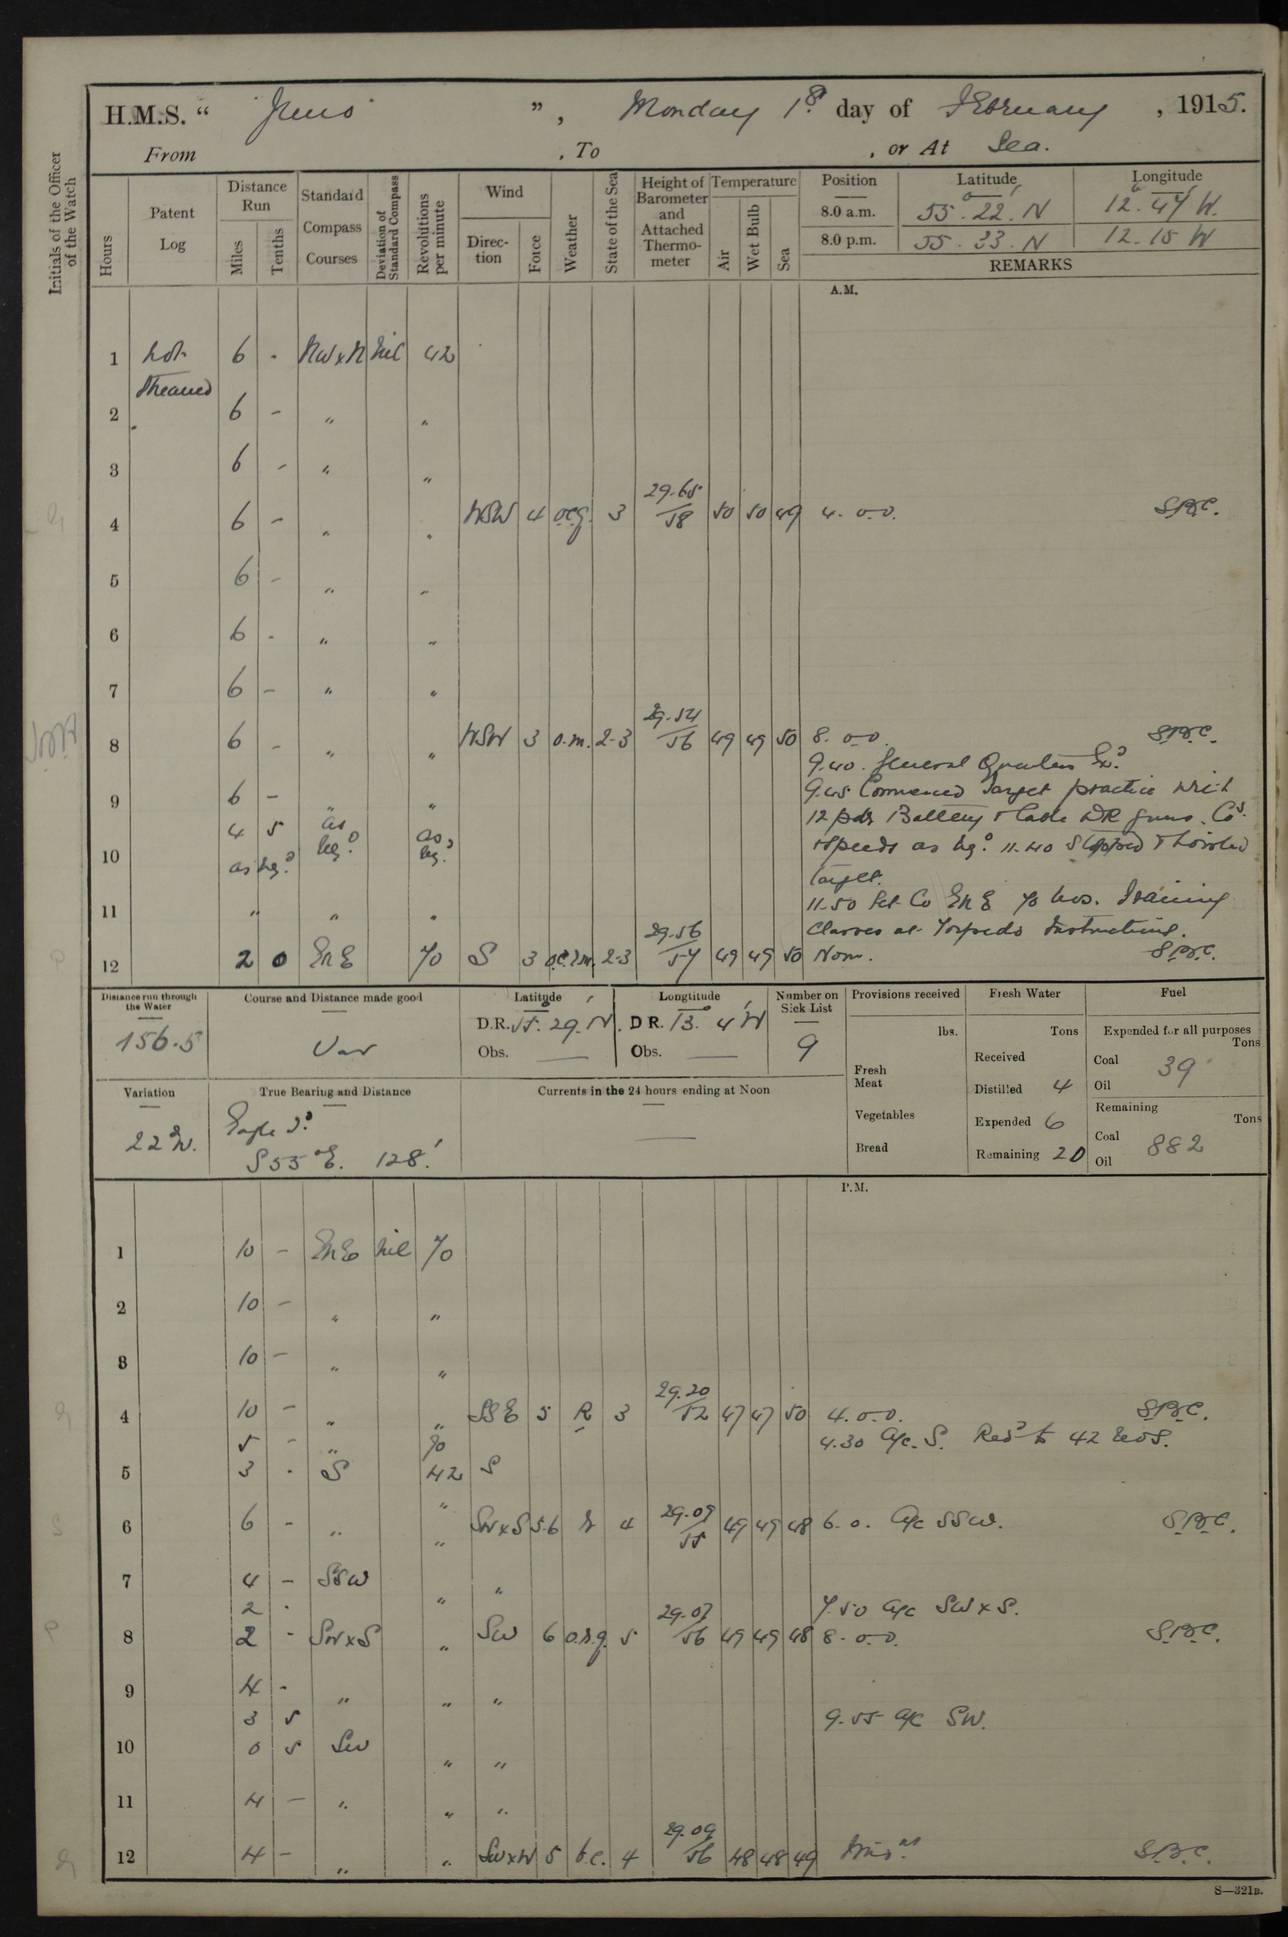 H.M.S. “ Juno ”, Monday 1st day of February, 1915.
From , To , or At Sea.
Initials of the Officer of the Watch
Hours
Patent Log
Distance Run
Miles
Tenths
Standard Compass Courses
Deviation of Standard Compass
Revolutions per minute
Wind
Direction
Force
Weather
State of the Sea
Height of Barometer and Attached Thermometer
Temperature
Air
Wet Bulb
Sea
Position Latitude Longitude
8.0 a.m. 55. 22. N 12. 47 W.
8.0 p.m. 55. 33. N 12. 15 W
REMARKS
A.M.
1 Not 6 - NWxN Nil 42
Streamed
2 6 - " "
3 6 - " "
4 6 - " " WSW 4 ocg. 3 29.65/58 50 50 49 4. 0-0. SBC.
5 6 - " "
6 6 - " "
7 6 - " "
8 6 - " " WSW 3 o.m. 2-3 29.54/56 49 49 50 8. 0-0. SBC.
9.40. General Quarters Exd
9 6 - " "
9.45 Commenced Target practice with
4 5 as reqd as reqd
12 pdr Battery
10 as reqd
speeds as reqd. 11.40 Stopped & hoisted
target.
11 " " "
11.50 Set Co ENE 70 revs. Training
Classes at Torpedo Instruction.
12 2 0 ENE 70 S 3 2-3 29.56/57 49 49 50 Noon. SBC.
Distance run through the Water
156.5
Course and Distance made good
Var
Latitude
D.R. 55. 29. N.
Obs. —
Longtitude
D R. 13. 4 W
Obs. —
Number on Sick List
9
Provisions received
lbs.
Fresh Meat
Vegetables
Bread
Fresh Water
Tons
Received
Distilled 4
Expended 6
Remaining 20
Fuel
Expended for all purposes
Tons
Coal 39
Oil
Remaining
Tons
Coal 882
Oil
Variation
22 W.
True Bearing and Distance
Eagle Id
S 55° E. 128'
Currents in the 24 hours ending at Noon
—
P.M.
1 10 - ENE Nil 70
2 10 - " "
3 10 - " "
4 10 - " " SSE 5 R 3 29.20/52 47 47 50 4. 0-0. SBC.
5 - " 70 4.30 A/c. S. Redd to 42 revs.
5 3 - S 42 S
6 6 - " " SWxS 5.6 r 4 29.09/55 49 49 48 6. 0. A/c SSW. SBC.
7 4 - SSW " "
2 - 7.50 A/c SWxS.
8 2 - SWxS " SW 6 o.r.q. 5 29.07/56 49 49 48 8. 0-0. SBC.
9 4 - " " "
3 5 9.55 A/c SW.
10 0 5 SW " "
11 4 - " " "
12 4 - " " SWxW 5 b.c. 4 29.09/56 48 48 49 Midt. SBC.
S—321B.